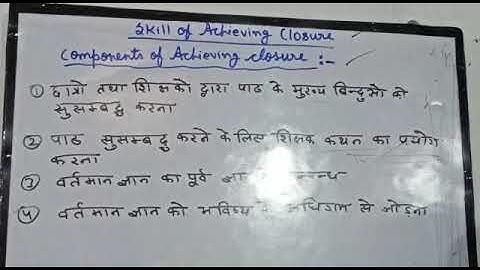 Skill of Achieving Closure
Components of Achieving closure :-
① छात्रो तथा शिक्षको द्वारा पाठ के मुख्य बिन्दुओ को
सुसम्बद्ध करना
② पाठ सुसम्बद्ध करने के लिए शिक्षक कथन का प्रयोग
करना
③ वर्तमान ज्ञान का पूर्व
④ वर्तमान ज्ञान को भविष्य के अधिगम से जोड़ना